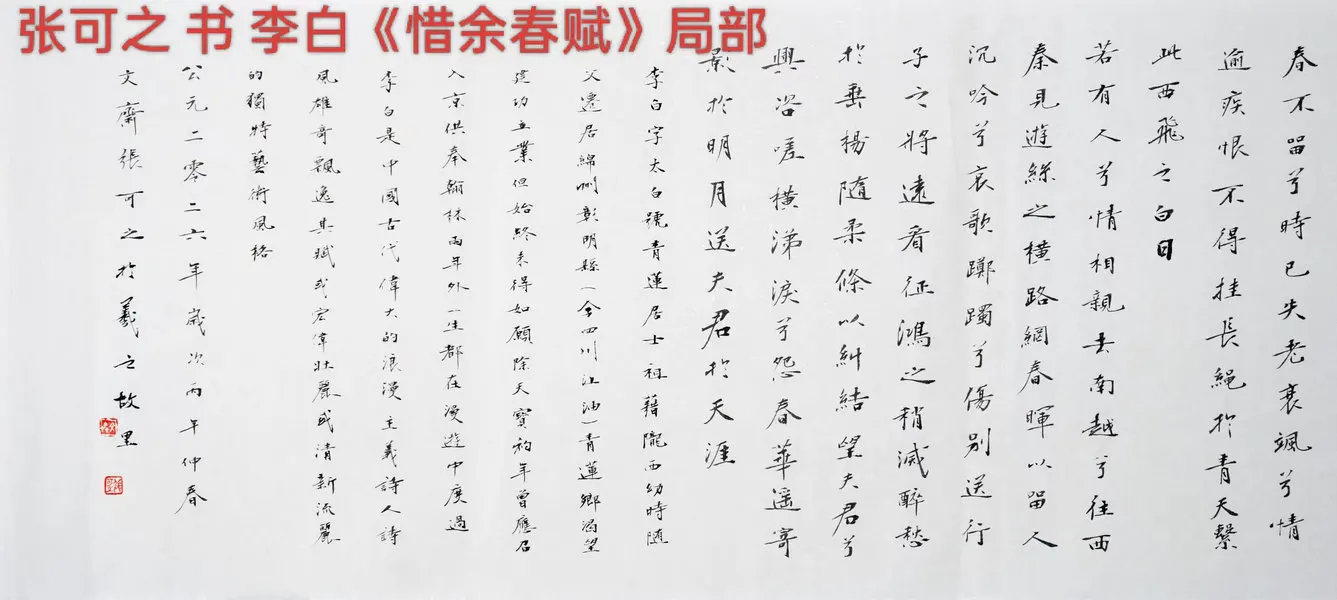 张可之 书 李白《惜余春赋》局部
春不留兮時已失老衰颯兮情
逾疾恨不得挂長繩於青天繫
此西飛之白日
若有人兮情相親去南越兮往西
秦見遊絲之橫路網春暉以留人
沉吟兮哀歌躑躅兮傷別送行
子之將遠看征鴻之稍滅醉愁
於垂楊隨柔條以糾結望夫君兮
興咨嗟橫涕淚兮怨春華遥寄
影於明月送夫君於天涯
李白字太白號青蓮居士祖籍隴西幼時随
父遷居綿州彰明縣(今四川江油)青蓮鄉渴望
建功立業但始終未得如願除天寶初年曾應召
入京供奉翰林两年外一生都在漫遊中度過
李白是中國古代偉大的浪漫主義詩人詩
風雄奇飄逸其賦或宏偉壮麗或清新流麗
的獨特藝術風格
公元二零二六年歲次丙午仲春
文齋張可之於羲之故里